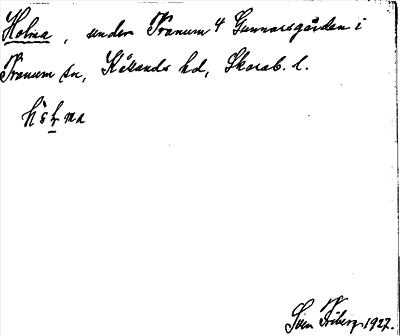 Holma, under Tranum 4 Gunnarsgården i
Tranum sn, Kållands hd, Skarab. l.
Sven Friberg 1927.